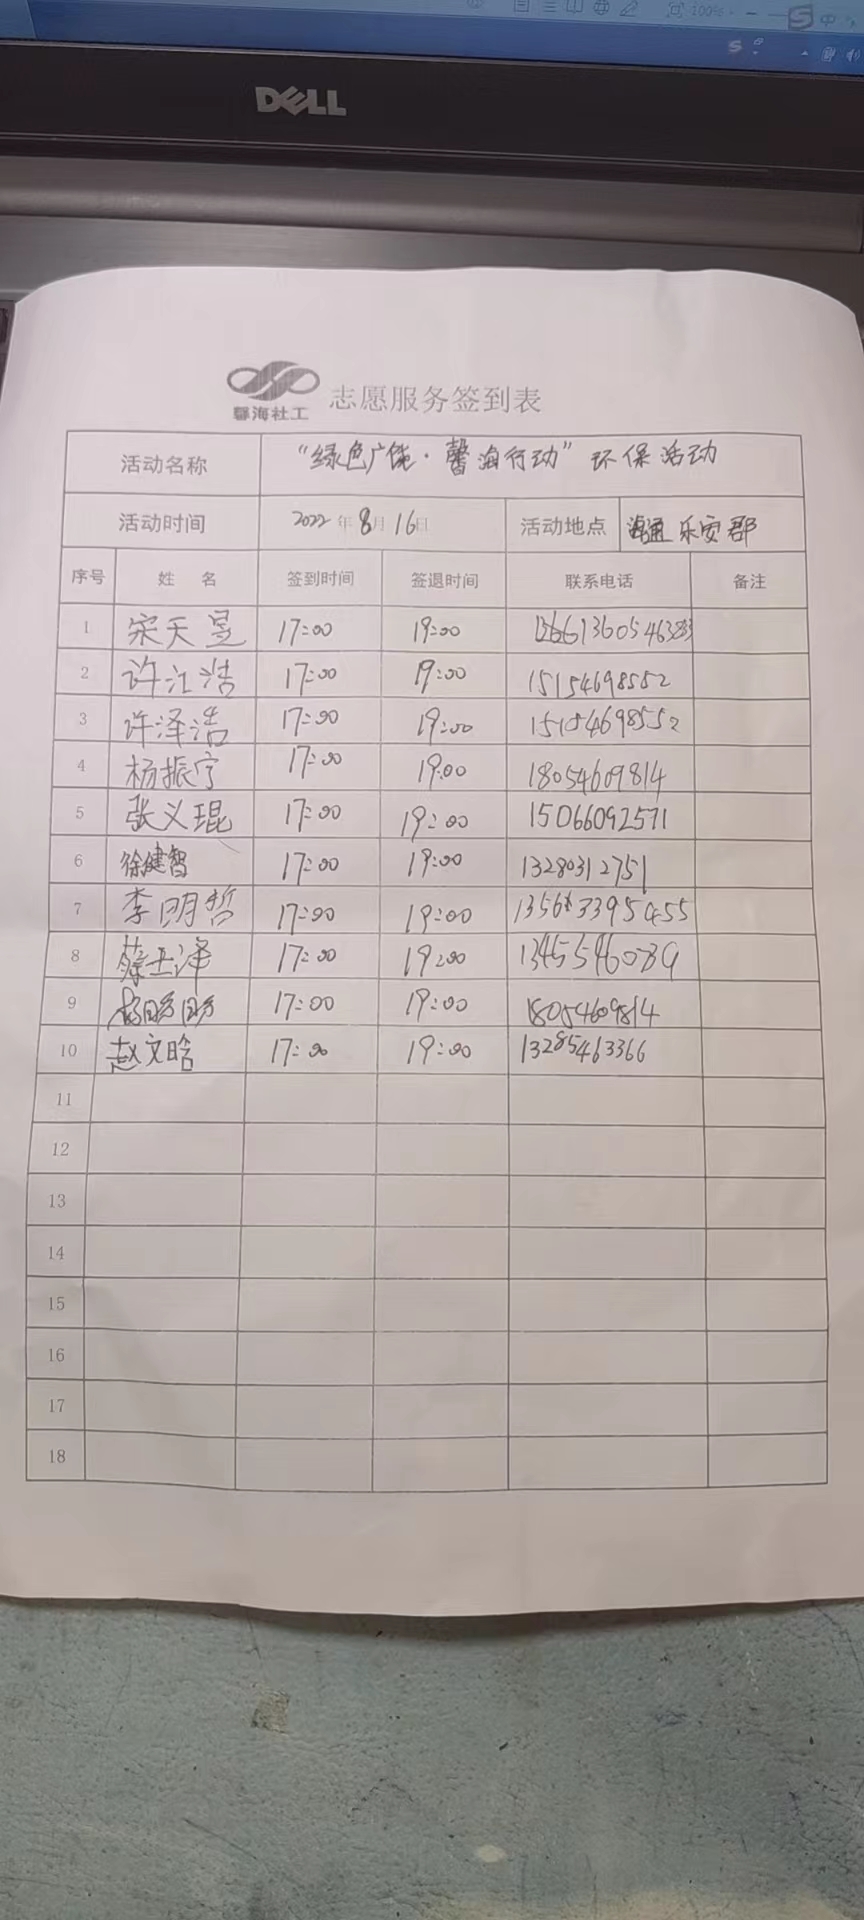 100%
中
DELL
馨海社工 志愿服务签到表
活动名称 “绿色广饶·馨海行动”环保活动
活动时间 2022年8月16日 活动地点 乐安郡
序号 姓 名 签到时间 签退时间 联系电话 备注
1 宋天昱 17:00 19:00
2 许江浩 17:00 19:00 15154698552
3 许泽浩 17:00 19:00 15154698552
4 杨振宁 17:00 19:00 18054609814
5 张义琨 17:00 19:00 15066092571
6 徐健智 17:00 19:00 13280312751
7 李明哲 17:00 19:00
8 17:00 19:00
9 17:00 19:00 18054609814
10 赵文晗 17:00 19:00 13285463366
11
12
13
14
15
16
17
18